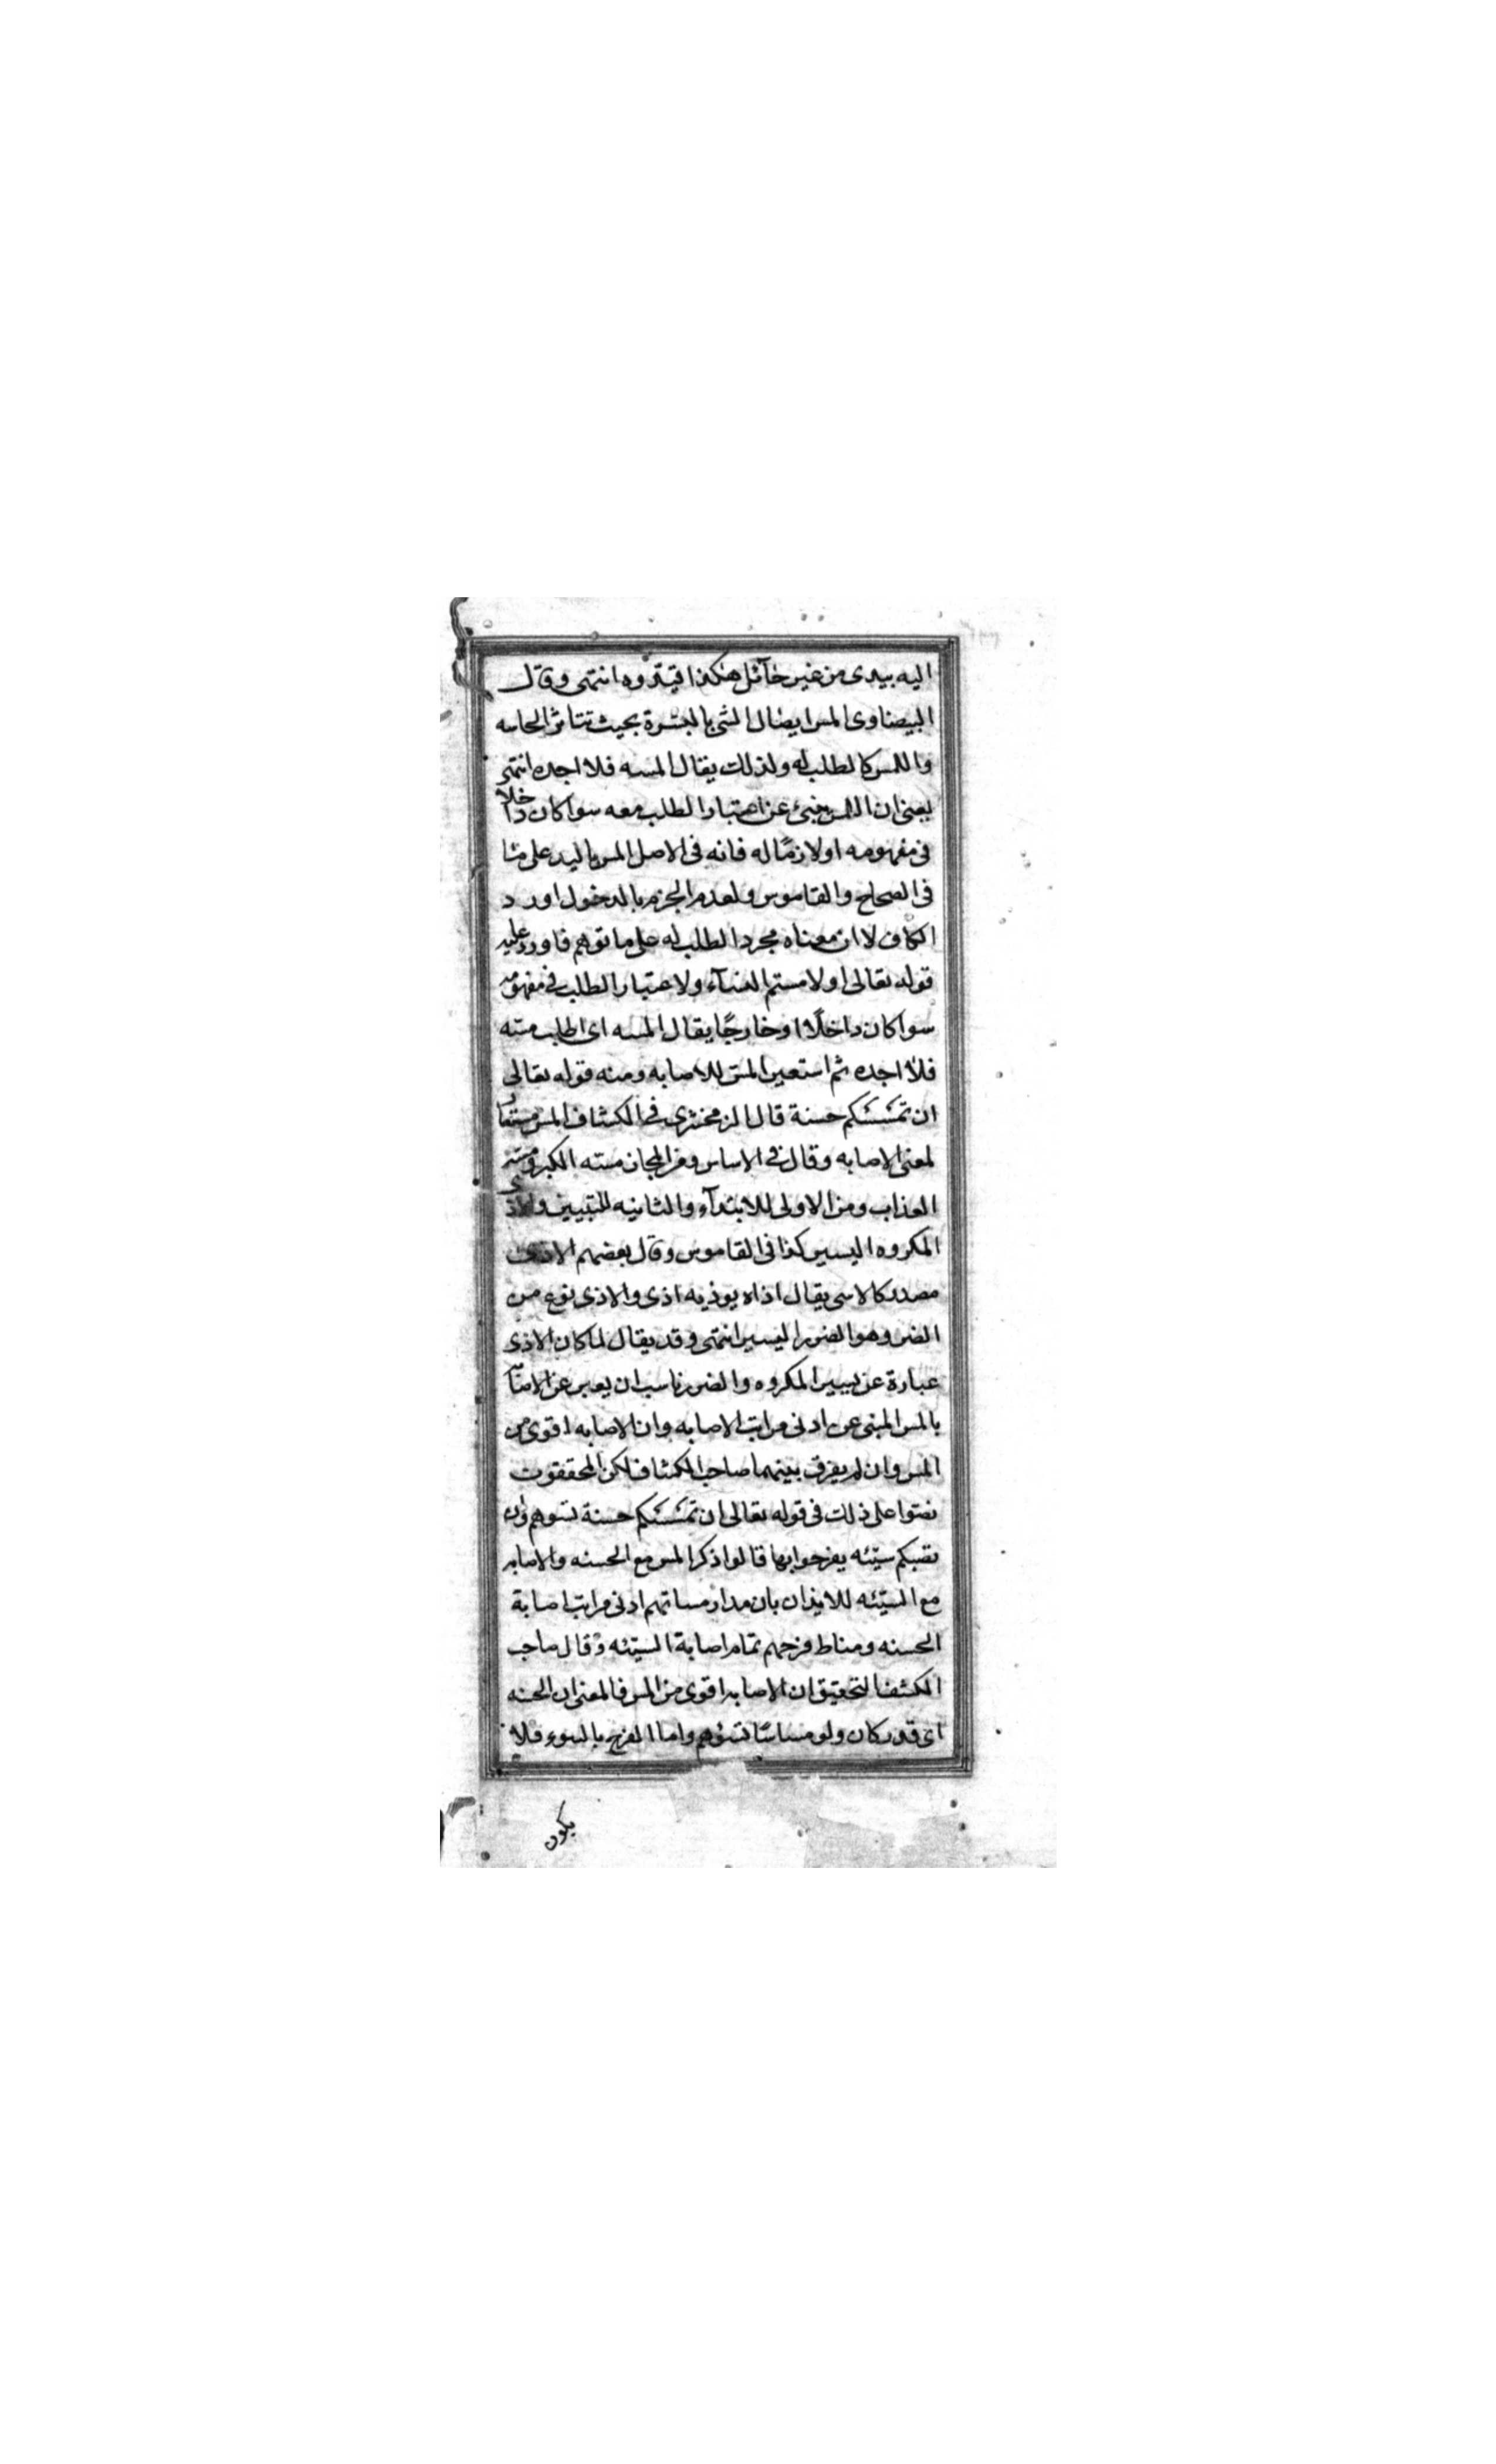 اليه بيدى من غير حآئل هكذا قيدوه انتهى وقال
البيضاوى المس ايصال الشى بالبشرة بحيث تتاثر الحاسه
واللمس كالطلب له ولذلك يقال المسه فلا اجده انتهى
يعنى ان اللمس ينبئ عن اعتبار الطلب معه سوا كان داخلا
فى مفهومه او لازمًا له فانه فى الاصل المس باليد على ما
فى الصحاح والقاموس ولعدم الجزم بالدخول اورد
الكاف لا ان معناه مجرد الطلب له على ما توهم فاورد عليه
قوله تعالى او لامستم النسآء ولاعتبار الطلب فى مفهومه
سوا كان داخلًا او خارجًا يقال المسه اى اطلب مسه
فلا اجده ثم استعير المس للاصابه ومنه قوله تعالى
ان تمسسكم حسنة قال الزمخشرى فى الكشاف المس مستعار
لمعنى الاصابه وقال فى الاساس ومن المجاز مسته الكبر ومسه
العذاب ومن الاولى للابتدآء والثانيه للتبيين والاذى
المكروه اليسير كذا فى القاموس وقال بعضهم الاذى
مصدر كالاسى يقال اذاه يوذيه اذى والاذى نوع من
الضر وهو الضرر اليسير انتهى وقد يقال لما كان الاذى
عبارة عن يسير المكروه والضرر ناسب ان يعبر عن الاصابة
بالمس المبنى عن ادنى مراتب الاصابه وان الاصابه اقوى من
المس وان لم يفرق بينهما صاحب الكشاف لكن المحققون
نصوا على ذلك فى قوله تعالى ان تمسسكم حسنة تسوهم وان
تصبكم سيّئه يفرحوا بها قالوا ذكر المس مع الحسنه والاصابه
مع السيّئه للايذان بان مدار مساتهم ادنى مراتب اصابة
الحسنه ومناط فرحهم تمام اصابة السيّئه وقال صاحب
الكشف التحقيق ان الاصابه اقوى من المس فالمعنى ان الحسنه
اى قدر كان ولو مساسًا تسؤهم واما الفرح بالسوء فلا
يكون